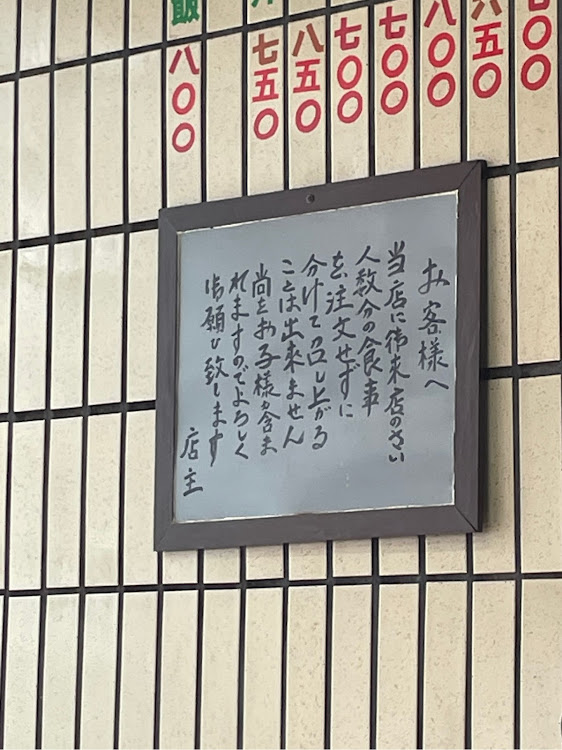 〇〇
六五〇
八〇〇
七〇〇
七〇〇
八五〇
七五〇
飯八〇〇
お客様へ
当店に御来店のさい
人数分の食事
を注文せずに
分けて召し上がる
ことは出来ません
尚をお子様も含ま
れますのでよろしく
御願ひ致します
店主